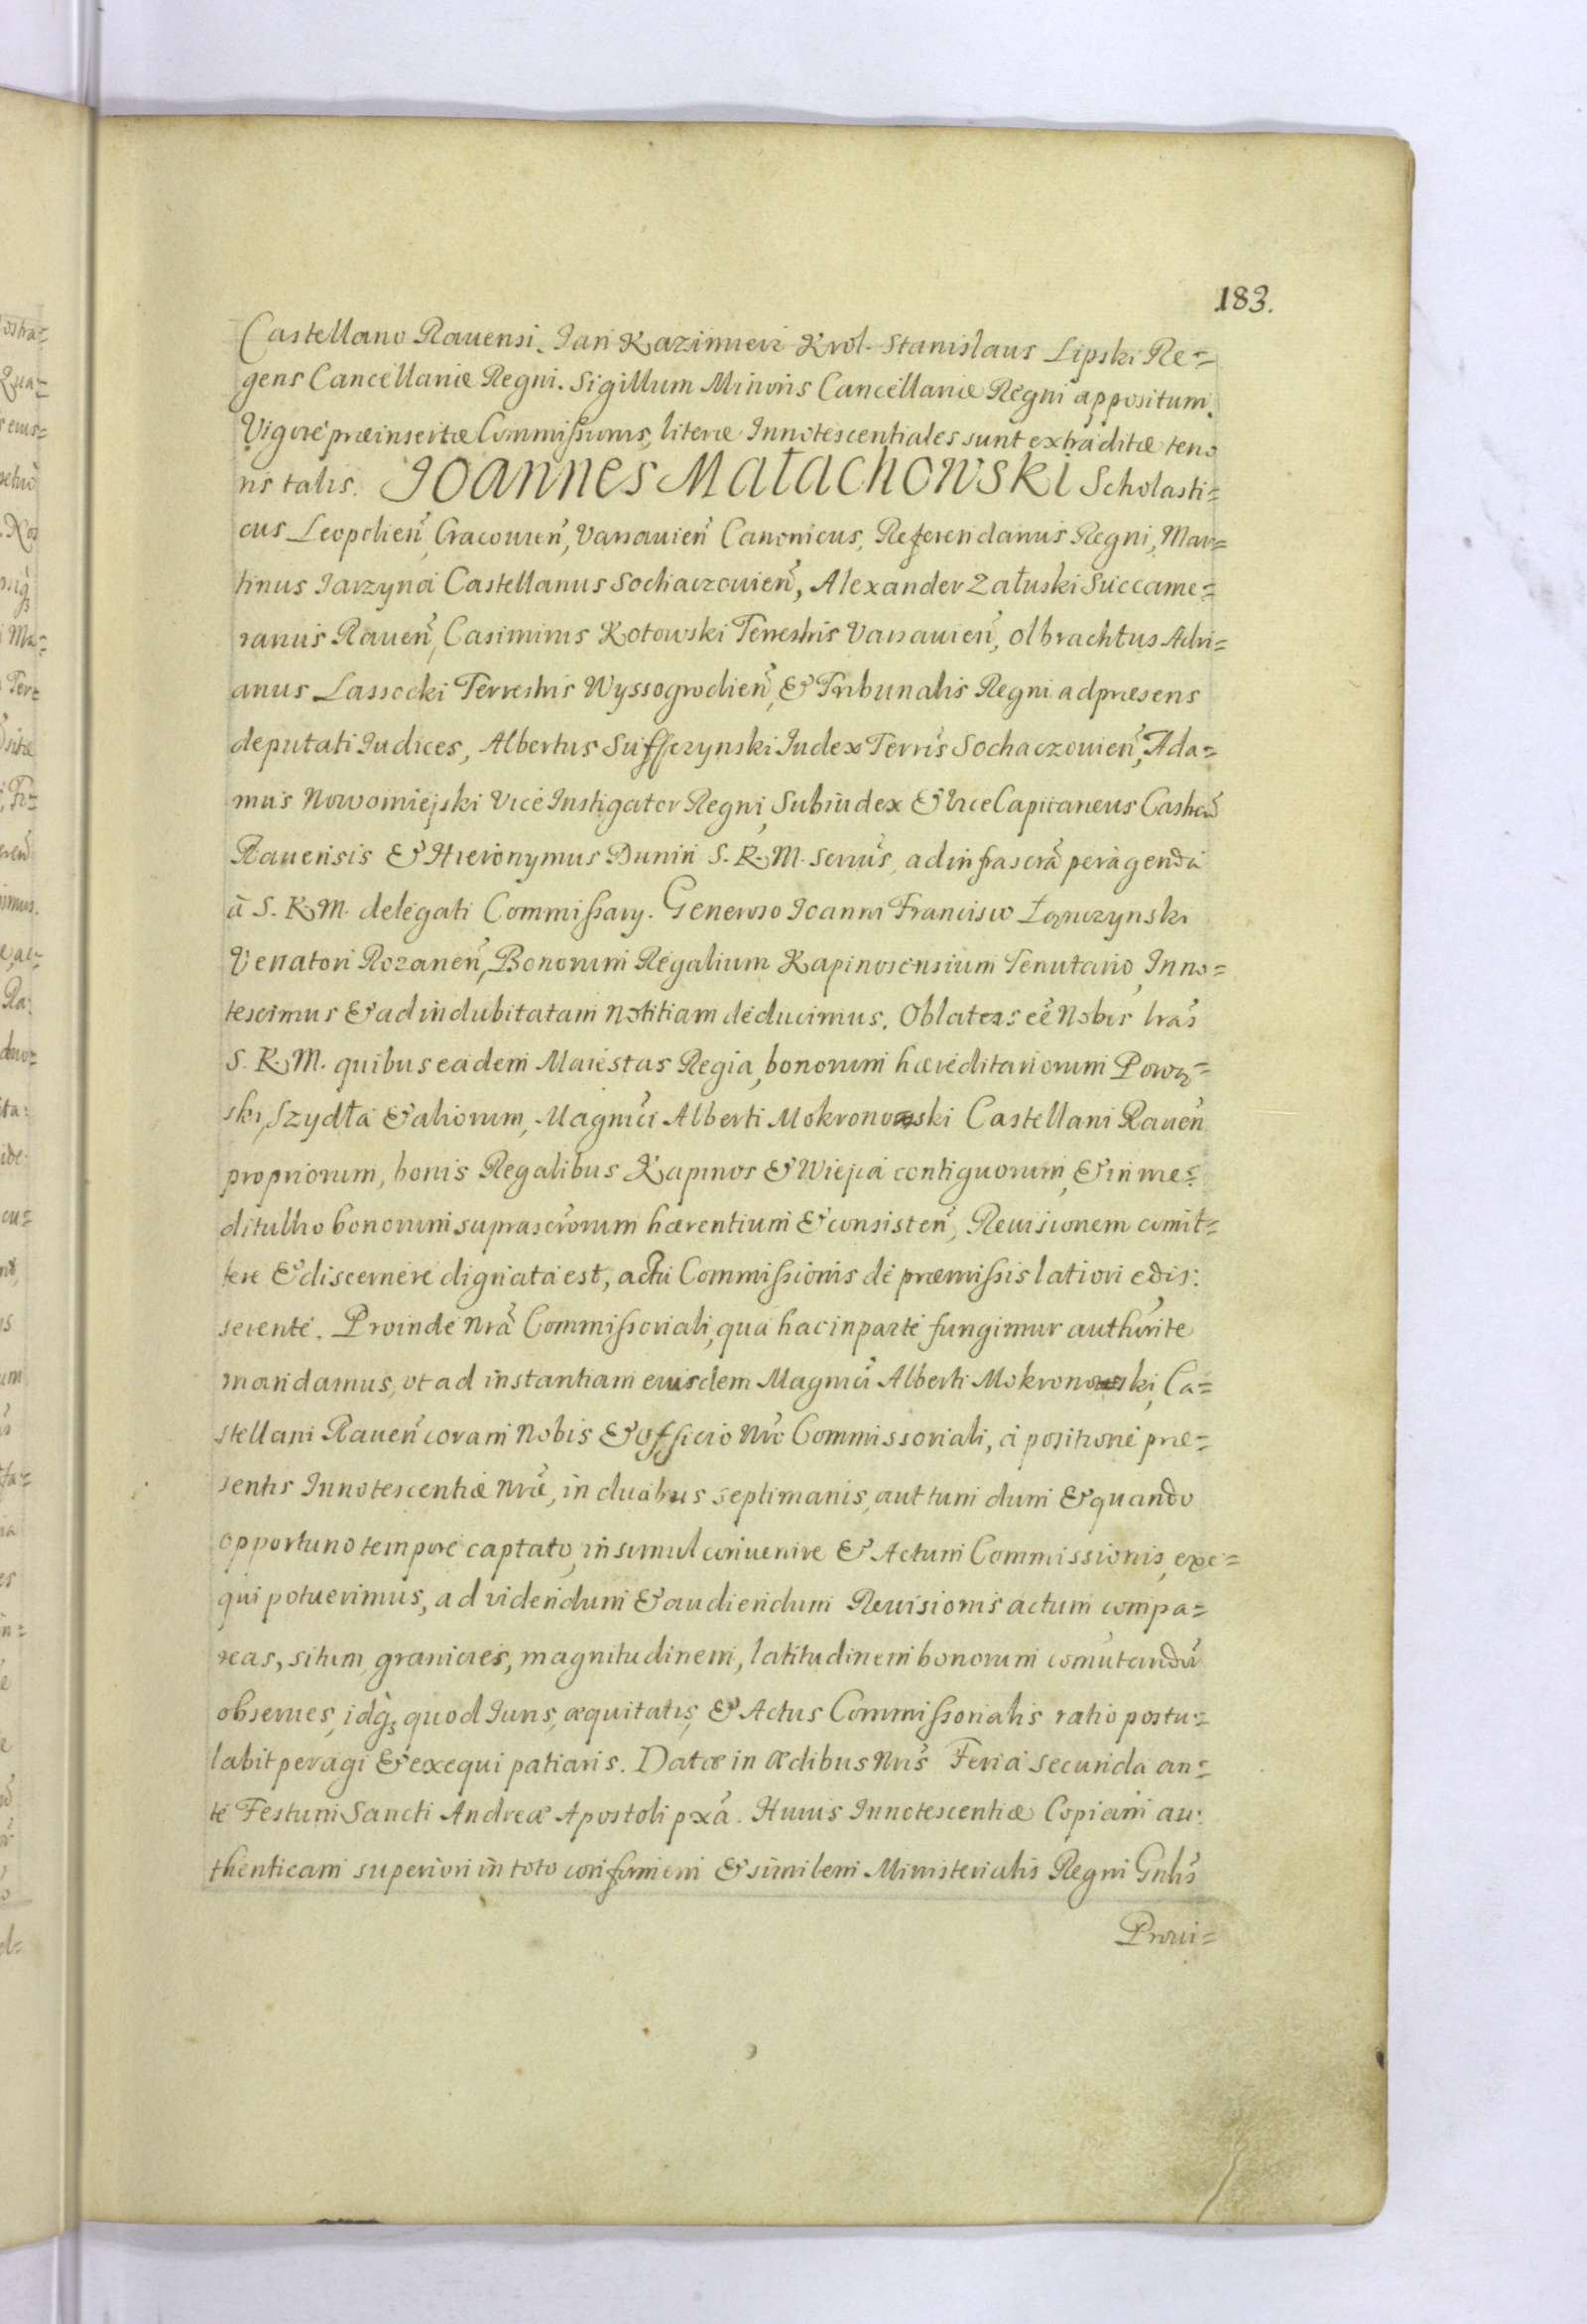 183.
Castellano Rauensi. Jan Kazimierz Krol. Stanislaus Lipski Re=
gens Cancellariæ Regni. Sigillum Minoris Cancellariæ Regni appositum.
Vigore præinsertæ Commissionis, literæ Innotescentiales sunt extraditæ teno
ris talis. JOANNES MAŁACHOWSKI Scholasti=
cus Leopolień, Cracouień, Varsauień Canonicus, Referendarius Regni, Mar=
tinus Jarzyna Castellanus Sochaczouień, Alexander Załuski Succame=
rarius Raueń, Casimirus Kotowski Terrestris Varsauień, Olbrachtus Adri=
anus Lassocki Terrestris Wyssogrodień, & Tribunalis Regni ad præsens
deputati Iudices, Albertus Suffczynski Iudex Terris Sochaczouień, Ada=
mus Nowomieyski Vice Instigator Regni, Subiudex & Vice Capitaneus Castreń
Rauensis & Hieronymus Dunin S. R. M. Seruus, ad infrascrã peragenda
à S. R. M. delegati Commissarij. Generoso Joanni Francisco Łączynski
Venatori Rozaneń, Bonorum Regalium Kapinosensium Tenutario, Inno=
tescimus & ad indubitatam notitiam deducimus. Oblatas eẽ Nobis lrãs
S. R. M. quibus eadem Maiestas Regia, bonorum hæreditariorum Pową=
ski, Szydła & aliorum, Magnici Alberti Mokronowski Castellani Raueń
propriorum, bonis Regalibus Kapinos & Wiejca contiguorum, & in me=
ditullio bonorum suprascrorum hærentium & consisteń, Reuisionem comit=
tere & discernere dignata est, actu Commissionis de præmissis latiori edis:
serente. Proinde nrã Commissoriali, qua hac in parte fungimur authorite
mandamus, ut ad instantiam eiusdem Magnici Alberti Mokronowski, Ca=
stellani Raueń coram Nobis & officio nro Commissoriali, à positione præ=
sentis Innotescentiæ nræ, in duabus septimanis, aut tum dum & quando
opportuno tempore captato, insimul conuenire & Actum Commissionis, exe=
qui potuerimus, ad videndum & audiendum Reuisionis actum compa=
reas, situm, granicies, magnitudinem, latitudinem bonorum comutandor
obserues, idq quod Iuris, æquitatis, & Actus Commissorialis ratio postu=
labit peragi & exequi patiaris. Datæ in Ædibus nris Feria secunda an=
te Festum Sancti Andreæ Apostoli pxã. Huius Innotescentiæ Copiam au:
thenticam superiori in toto conformem & similem Ministerialis Regni Gnlis
Proui=